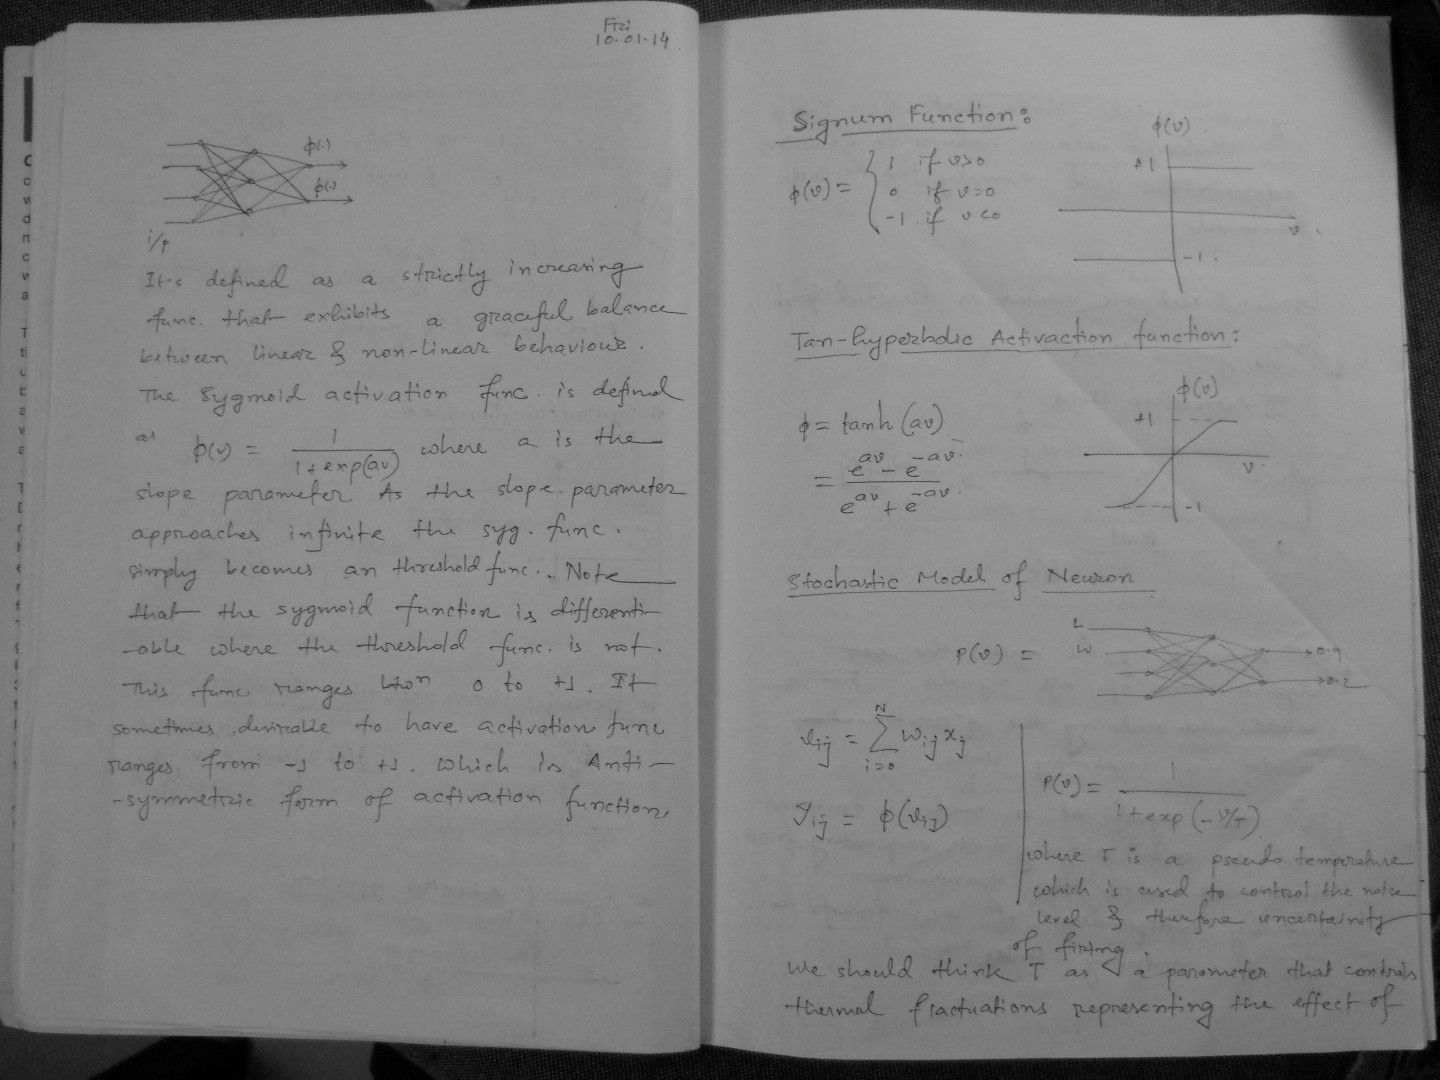 Fri
10.01.14
ϕ(.)
ϕ(.)
i/p
It's defined as a strictly increasing
func. that exhibits a graceful balance
between linear & non-linear behaviour.
The sygmoid activation func. is defined
as ϕ(v) = 1 / 1+exp(av) where a is the
slope parameter. As the slope parameter
approaches infinite the syg. func.
simply becomes an threshold func.. Note
that the sygmoid function is differenti-
-able where the threshold func. is not.
This func ranges 0 to +1. It
sometimes desirable to have activation func
ranges from -1 to +1. Which is Anti-
-symmetric form of activation function
Signum Function:
ϕ(v) = { 1 if v>0
0 if v=0
-1 if v<0
ϕ(v)
+1
v
-1
Tan-hyperbolic Activaction function:
ϕ = tanh(av)
= e^av - e^-av / e^av + e^-av
ϕ(v)
+1
v
-1
Stochastic Model of Neuron
P(v) =
L
W
0.9
0.2
vij = Σ N i=0 wij xj
yij = ϕ(vij)
P(v) = 1 / 1+exp(-v/T)
where T is a pseudo temperature
which is used to control the noise
level & therefore uncertainity
of firing.
We should think T as a parameter that controls
thermal flactuations representing the effect of